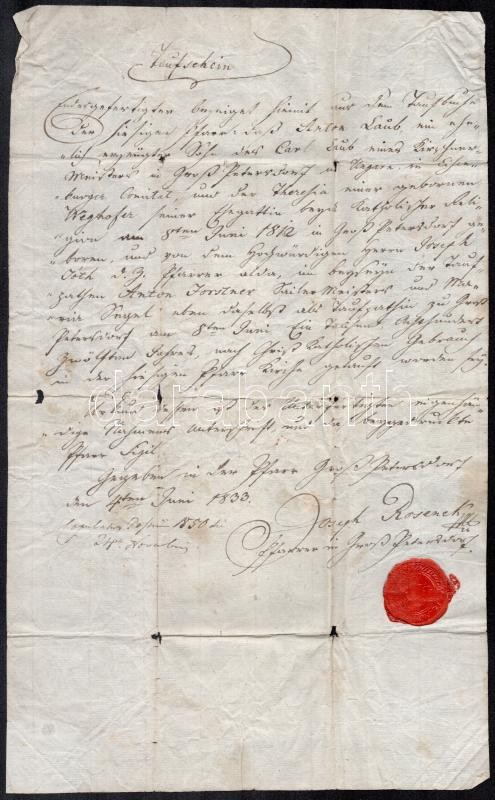 Taufschein
Endesgefertigter bezeiget hiemit aus dem Taufbuche
der hiesigen Pfarr: daß Anton Laub, ein ehe-
lich erzeugter Sohn des Carl Laub eines
Meisters in Groß Petersdorf in Ungern, in Eisen-
burger Comitat, und der Theresia einer gebornen
Weghofer seiner Ehegattin beyde Katholischer Reli-
gion am 8ten Juni 1812 in Groß Petersdorf ge-
boren, und von dem Hochwürdigen Herrn Joseph
Tóth d. Z. Pfarrer alda, im beyseyn der Tauf-
pathen Anton Forstner Sailer Meisters und Ma-
ria eben daselbst als Taufpathin zu Groß
Petersdorf am 8ten Juni Ein Tausend Achthundert
Zwölften Jahres, nach Christ Katholischen Gebrauch
in der hiesigen Pfarr Kirche getauft worden sey.
Urkund dessen ist des Unterfertigten eigenhän-
dige Nahmens Unterschrift, und die beygedruckte
Pfarr Sigil.
Gegeben in der Pfarr Groß Petersdorf
den 4ten Juni 1833.
Joseph Rosenek
Pfarrer in Groß Petersdorf
1850
24
darabanth